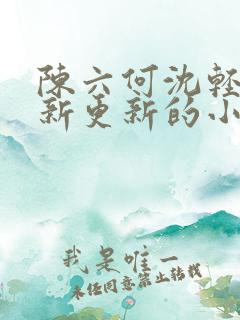 陳六何沈輕
新更新的小
我是唯一
未经同意禁止转载